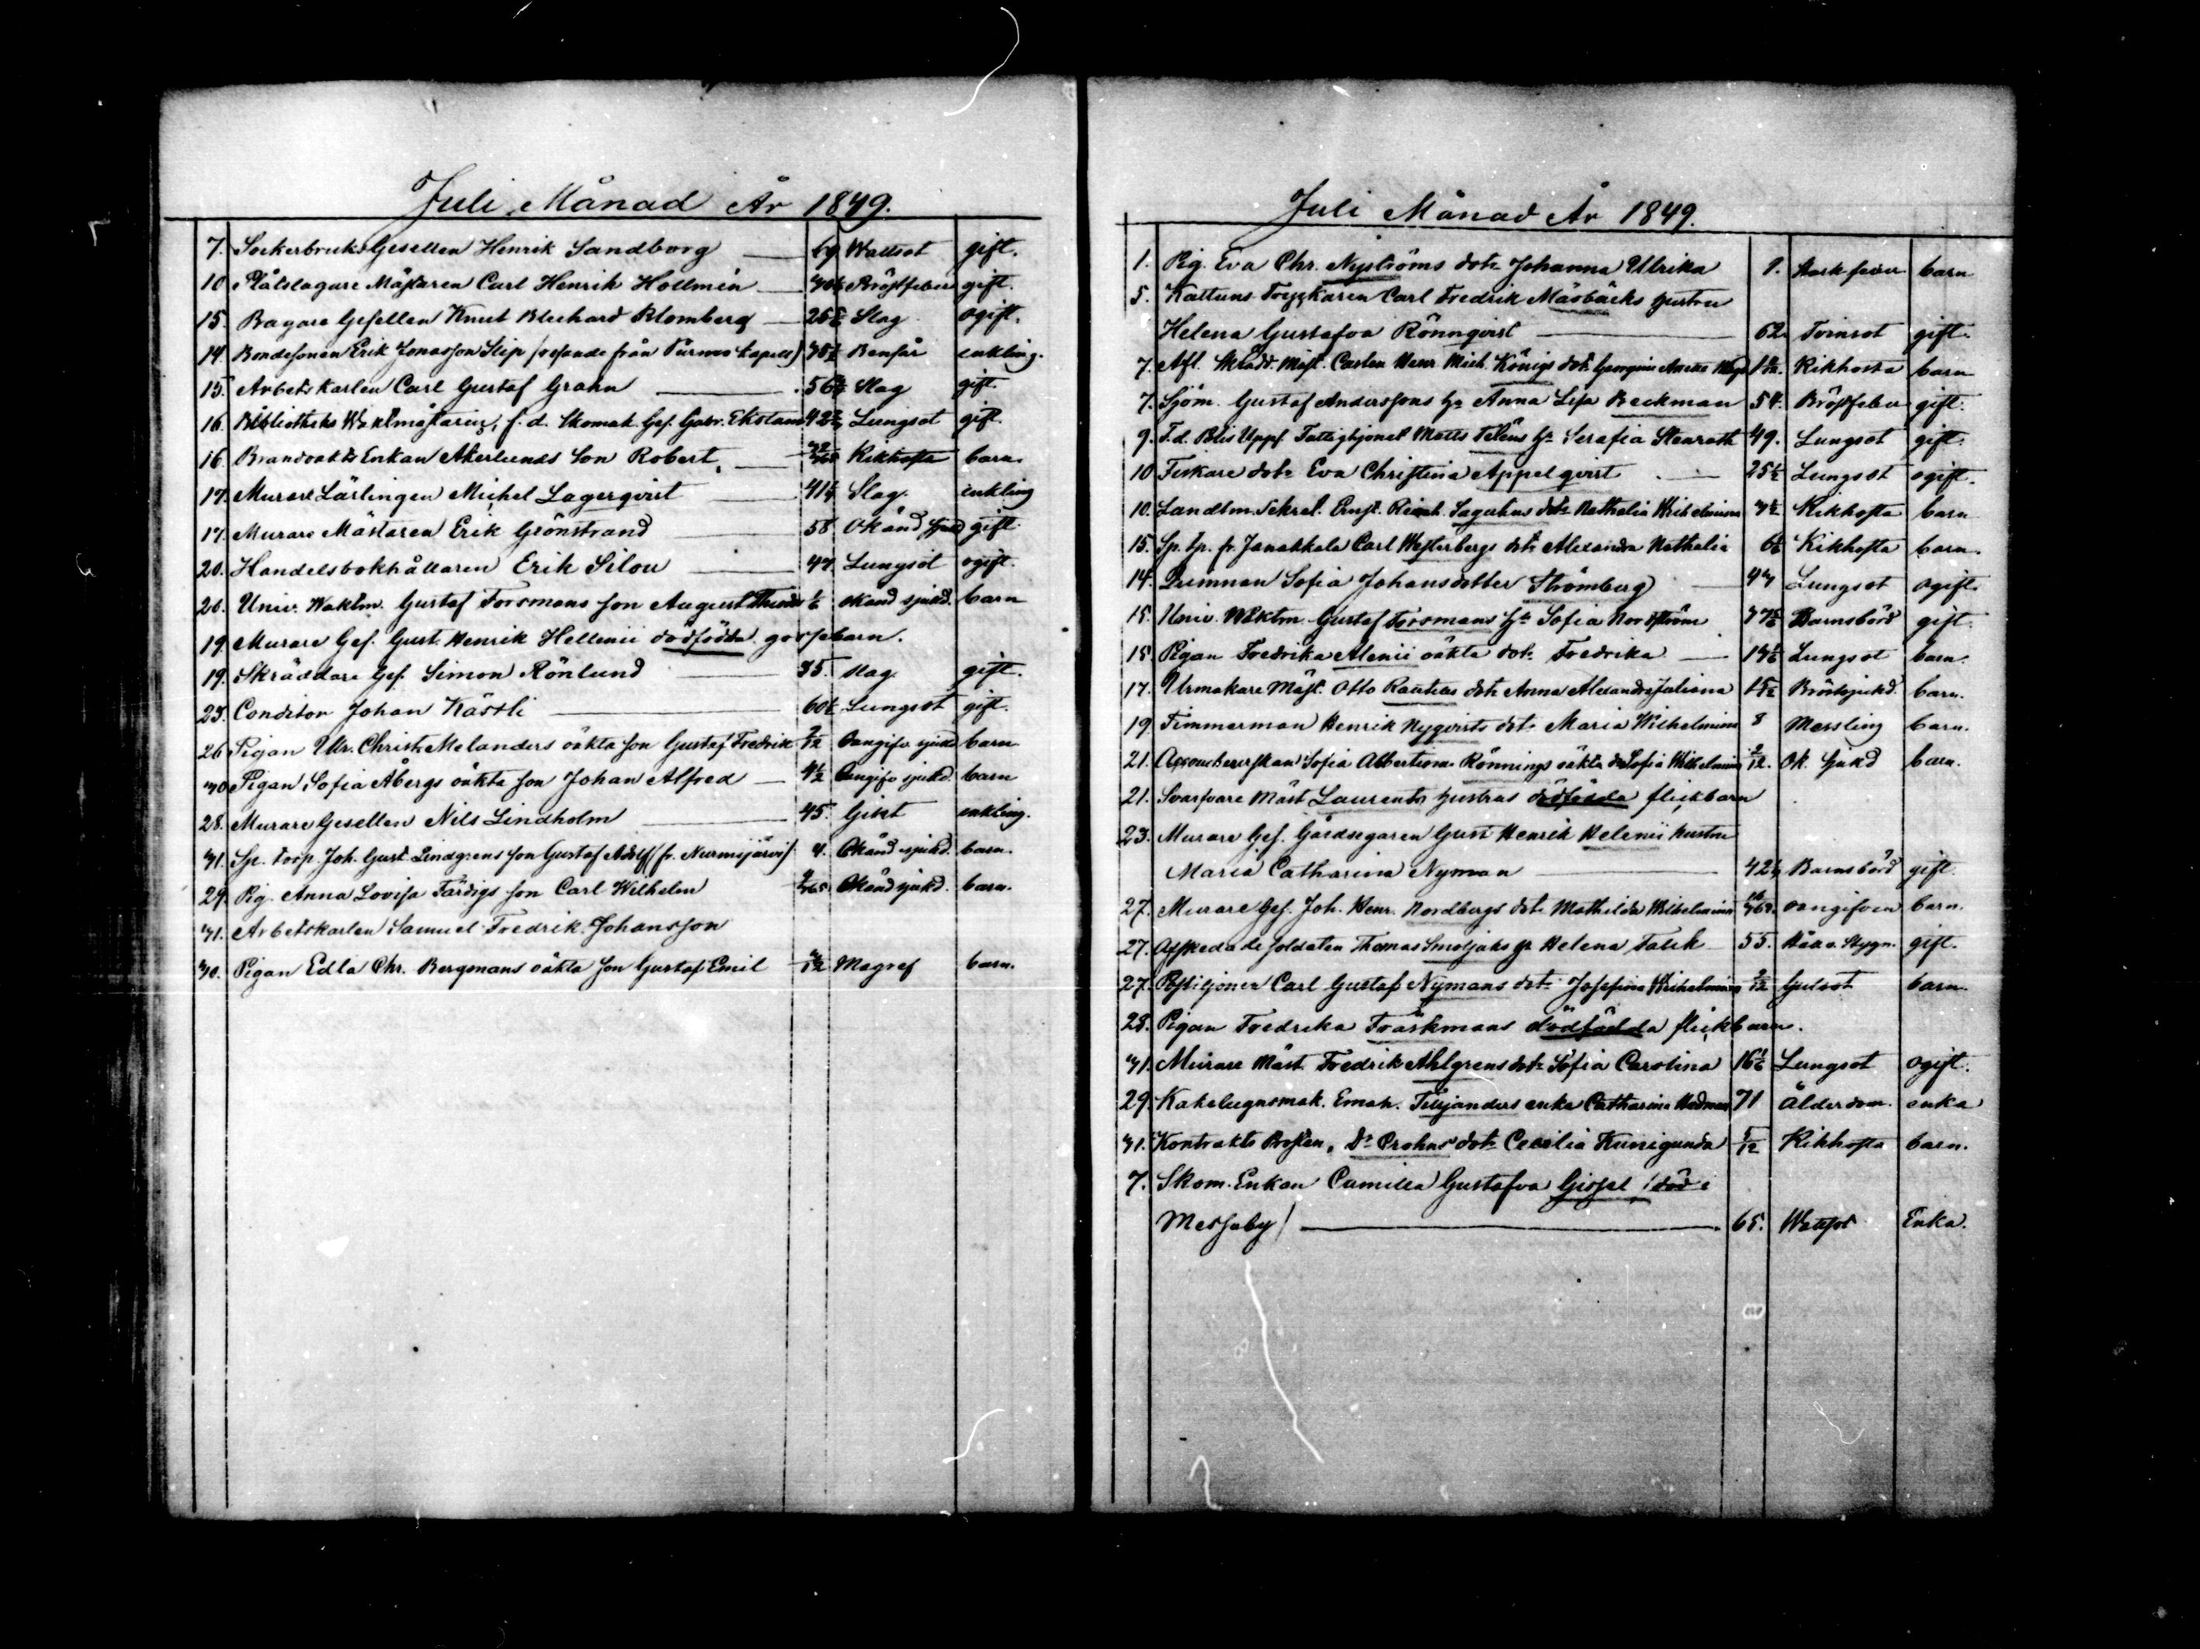 Juli Månad År 1849.
7. Sockerbruks Gesellen Henrik Sandborg 69 Wattsot gift.
10 Plåtslagare Mästaren Carl Henrik Hollmén Bröstfeber gift.
15. Bagare Gesellen Knut Blechard Blomberg Slag ogift.
14. Bondesonen Erik Jonasson Slip (resande från Purmo Kapell) Benfår enkling.
15 Arbetskarlen Carl Gustaf Grahn Slag gift.
16. Bibliotheks f. d. Skomak. Ges. Gabr. Ekstam Lungsot gift.
16. Brandvakts Enkan Åkerlunds Son Robert Kikhosta barn.
17. Murare Lärlingen Michel Lagerqvist Slag. enkling
17. Murare Mästaren Erik Grönstrand 58 Okänd sjukd gift.
20. Handelsbokhållaren Erik Silou 47. Lungsot ogift.
20. Univ. Waktm. Gustaf Forsmans son August okänd sjukd. barn
19. Murare Ges. Gust. Henrik Hellenii dödfödda gossebarn.
19. Skräddare Ges. Simon Rönlund 35. slag. gift.
23. Conditor Johan Kästli Lungsot gift.
26 Pigan Ulr. Christ. Melanders oäkta son Gustaf Fredrik 2/12 Oangifv. sjukd barn
30 Pigan Sofia Åbergs oäkta son Johan Alfred 4½ Oangifv. sjukd. barn
28. Murare Gesellen Nils Lindholm 45. Gikt enkling.
31. Sp. torp. Joh. Gust. Lindgrens son Gustaf Adolf (fr. Nurmijärvi) Okänd sjukd. barn.
29. Pig. Anna Lovisa Färdigs son Carl Wilhelm Okänd sjukd. barn.
31. Arbetskarlen Samuel Fredrik Johansson
30. Pigan Edla Chr. Bergmans oäkta son Gustaf Emil 3/12 Magref barn.
Juli Månad År 1849.
1. Pig. Eva Chr. Nyströms dotr Johanna Ulrika 1. Skarl. feber barn
5. Kattuns Tryckaren Carl Fredrik Mårbäcks hustru
Helena Gustafva Rönnqvist 62 Tvinsot gift.
7. Carsten Henr. Mich. Königs dotr Georgina Kikhosta barn
7. Sjöm. Gustaf Anderssons hu Anna Lisa Beckman 54. Bröstfeber gift.
9. F.d. Matts Teléns hu Serafia Stenroth 49. Lungsot gift.
10 Fiskare dotr Eva Christina Appelqvist 25½ Lungsot ogift.
10. Landtm. Sekret. Ernst. Reinh. Sagulins dotr Nathalia Wilhelmina 3½ Kikhosta barn
15. Sp. tp. fr. Janakkala Carl Westerbergs dotr Alexandra Nathalia Kikhosta barn.
14. Qvinnan Sofia Johansdotter Strömberg 47 Lungsot ogift.
15. Univ. Waktm. Gustaf Forsmans hu Sofia Nordström Barnsbörd gift.
15. Pigan Fredrika Alenii oäkta dotr Fredrika Lungsot barn.
17. Urmakare Mäst. Otto Rautells dotr Anna Alexandra Juliana Bröstsjukd. barn.
19 Timmerman Henrik Nyqvists dotr Maria Wilhelmina 8 Messling barn.
21. Accoucherskan Sofia Albertina Rönnings oäkta dr Sofia Wilhelmina 2/12. Ok. sjukd barn.
21. Svarfvare Mäst Laurents hustrus dödfödda flickbarn
23. Murare Ges. Gårdsegaren Gust Henrik Helenii hustru
Maria Catharina Nyman 42½ Barnsbörd gift.
27. Murare Ges. Joh. Henr. Nordbergs dotr Mathilda Wilhelmina oangifven barn.
27. Afskedade soldaten Thomas Smoljaks hu Helena Falck 55. Håll o. Stygn. gift.
27. Postiljonen Carl Gustaf Nymans dotr Josefina Wilhelmina 2/12 Gulsot barn.
28. Pigan Fredrika Fräskmans dödfödda flickbarn.
31. Murare Mäst. Fredrik Ahlgrens dotr Sofia Carolina Lungsot ogift.
29. Kakelugnsmak. Eman. Tiljanders enka Catharina Hedman 71 Ålderdom. enka
31. Kontrakts Prosten, Dr Crohns dotr Cecilia Kunigunda 5/12 Kikhosta barn.
7. Skom. Enkan Camilla Gustafva Gissel (död i
Messuby) 65. Wattsot Enka.